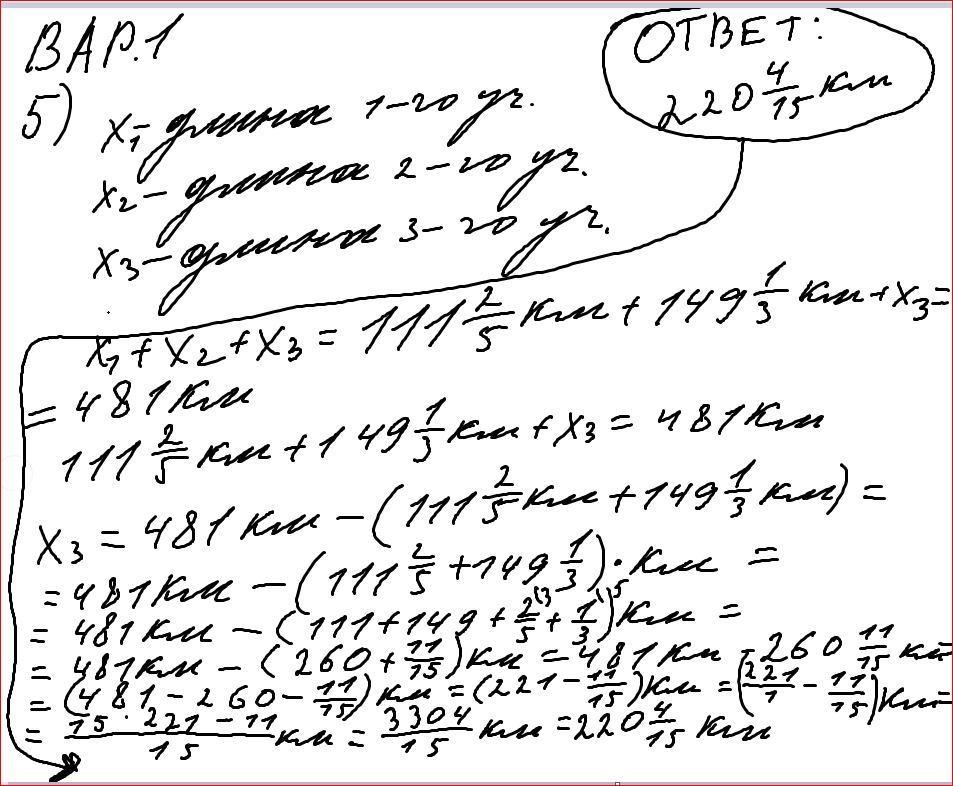 ВАР.1
ОТВЕТ:
220 4/15 км
5) x₁ - длина 1-го уч.
x₂ - длина 2-го уч.
x₃ - длина 3-го уч.
x₁ + x₂ + x₃ = 111 2/5 км + 149 1/3 км + x₃ =
= 481 км
111 2/5 км + 149 1/3 км + x₃ = 481 км
x₃ = 481 км - (111 2/5 км + 149 1/3 км) =
= 481 км - (111 2/5 + 149 1/3) · км =
= 481 км - (111 + 149 + 2/5 ⁽³ + 1/3 ⁽⁵) км =
= 481 км - (260 + 11/15) км = 481 км - 260 11/15 км =
= (481 - 260 - 11/15) км = (221 - 11/15) км = (221/1 - 11/15) км =
= (15 · 221 - 11)/15 км = 3304/15 км = 220 4/15 км